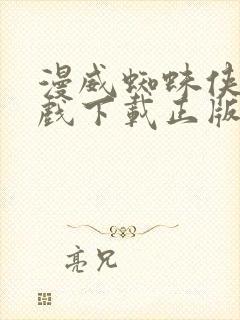 漫威蜘蛛侠
戏下载正版
亮兄